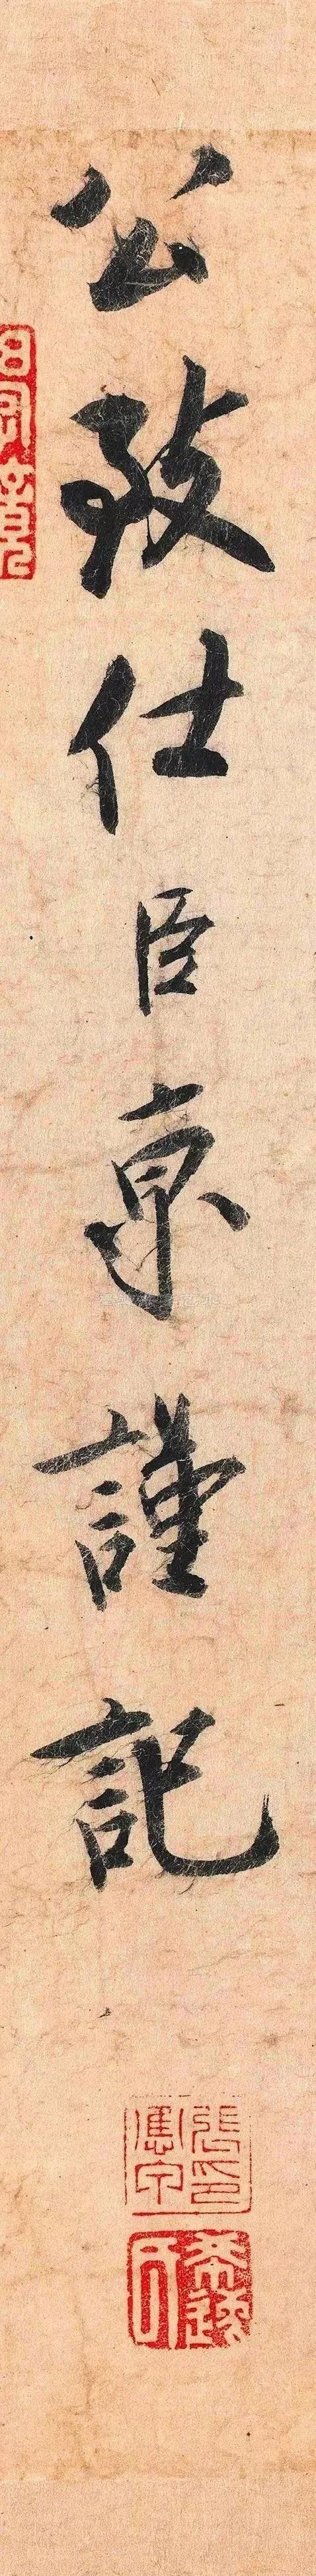 公致仕臣京謹記